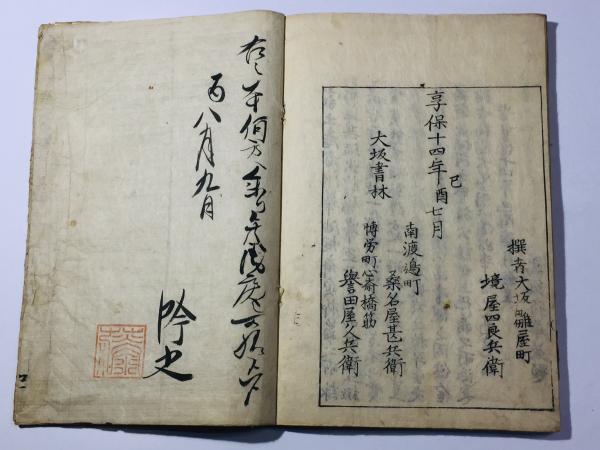 撰者大坂雛屋町
境屋四良兵衛
享保十四年己酉七月
南渡邊町
桑名屋甚兵衛
大坂書林
博労町心斎橋筋
譽田屋久兵衛
右之本何方へ
八月九日
吟史